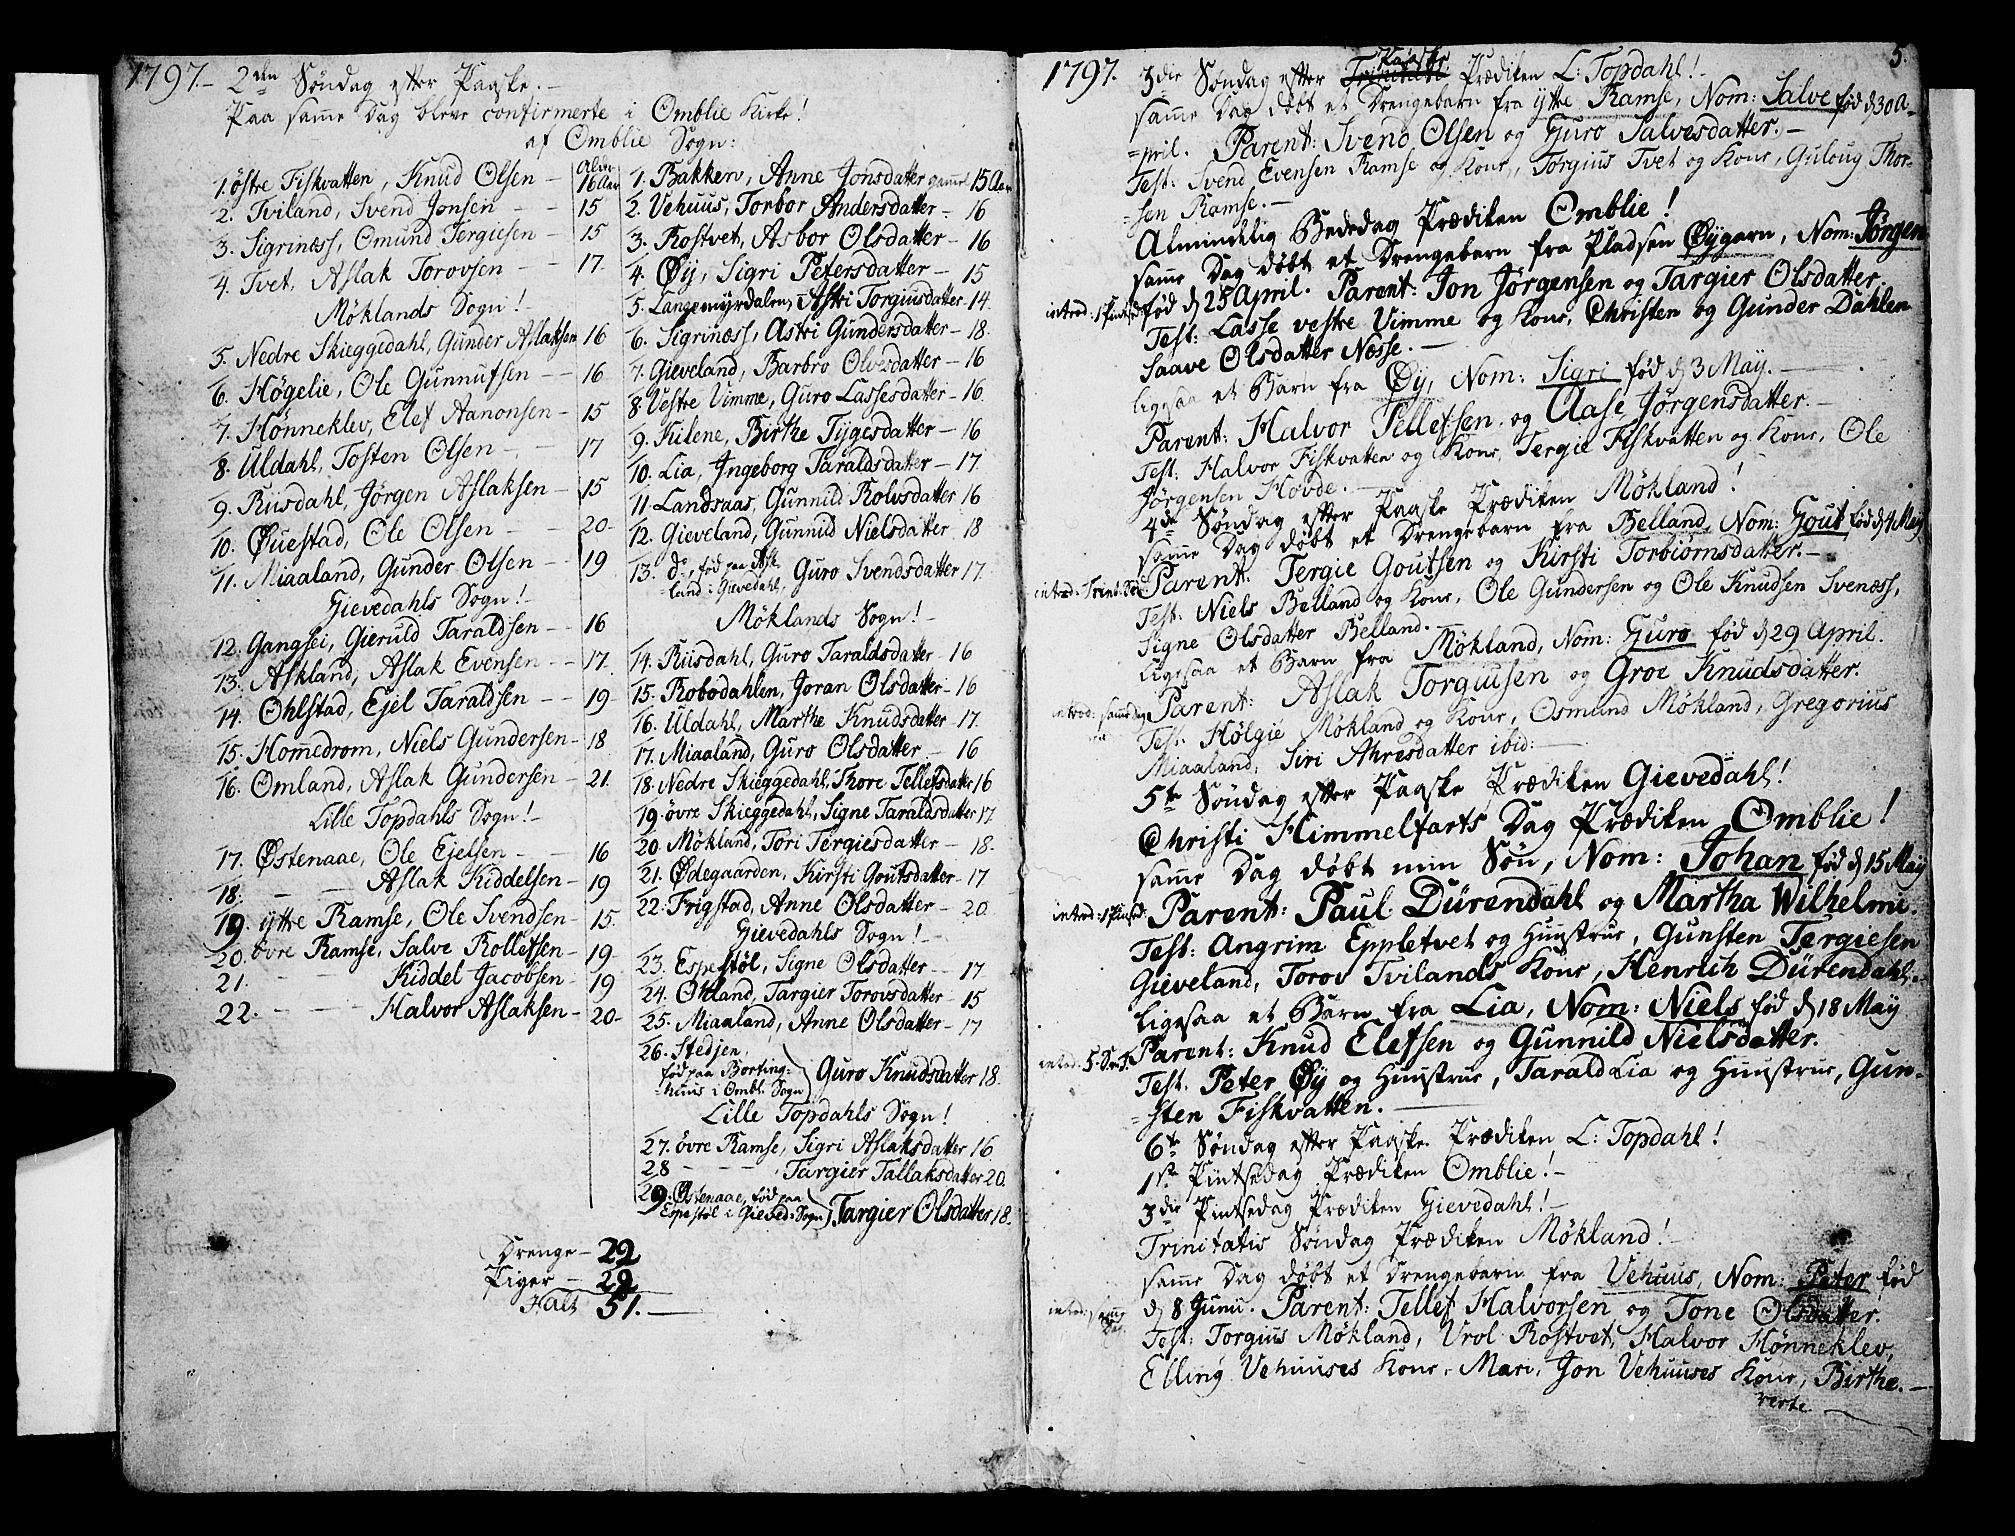 1797.- 2den Søndag efter Paaske.-
Paa samme Dag bleve confirmerte i Omblie Kirke!
af Omblie Sogn:
Alder
1. østre Fiskvatten, Knud Olsen - 16 Aar
2. Tviland, Svend Jonsen - - 15
3. Sigrinæss, Omund Tergiesen - 15
4. Tvet, Aslak Torovsen - - 17.
Møklands Sogn!-
5. Nedre Skieggedahl, Gunder Aslaksen 16
6. Høgelie, Ole Gunnufsen - - 16
7. Hønneklev, Elef Aanonsen - 15
8. Uldahl, Tosten Olsen - - 17
9. Riisdahl, Jørgen Aslaksen - 15
10. Øuestad, Ole Olsen - - 20-
11. Miaaland, Gunder Olsen - - 19
Gievedahls Sogn!-
12. Gangsei, Gieruld Taraldsen - - 16
13. Askland, Aslak Evensen - - 17.
14. Ohlstad, Ejel Taraldsen - - 19
15. Homedrom, Niels Gundersen - 18
16. Omland, Aslak Gundersen - 21.
Lille Topdahls Sogn!-
17. Østenaae, Ole Ejelsen - - 16
18. - - Aslak Kiddelsen - 19
19. ytre Ramse, Ole Svendsen - 15.
20. øvre Ramse, Salve Rollefsen - 19-
21. Kiddel Jacobsen - 19
22. - - - Halvor Aslaksen - 20-
1. Bakken, Anne Jonsdatter gamel 15 Aar
2. Vehuus, Torbor Andersdatter - 16
3. Rostvet, Asbor Olsdatter - 16
4. Øÿ, Sigri Petersdatter - 15
5. Langemyrdalen, Astri Torgiusdatter - 14.
6. Sigrinæss, Astri Gundersdatter - 18.
7. Gieveland, Barbro Olvesdatter - 16
8. Vestre Vimme, Guro Lassesdatter - 16.
9. Kilene, Birthe Tÿgesdatter - 16
10. Lia, Ingeborg Taraldsdatter - 17.
11. Landsaas, Gunnild Rolvsdatter 16
12. Gieveland, Gunnild Nielsdatter - 18
13. do, fød paa Ask=
=land i Gievedahl, Guro Svendsdatter 17.
Møklands Sogn!-
14. Riisdahl, Guro Taraldsdatter - 16
15. Robodahlen, Joran Olsdatter - 16
16. Uldahl, Marthe Knudsdatter - 17.
17. Miaaland, Guro Olsdatter - 16
18. Nedre Skieggedahl, Thore Tellefsdatter 16
19. øvre Skieggedahl, Signe Taraldsdatter 17
20. Møkland, Tori Tergiesdatter - 18.
21. Ødegaarden, Kirsti Goutsdatter - 17
22. Frigstad, Anne Olsdatter - 20.
Gievedahls Sogn!-
23. Espestøl, Signe Olsdatter - 17
24. Okland, Targier Torovsdatter - 15
25. Miaaland, Anne Olsdatter - 17
26. Stedjen,
fød paa Borting=
=huus i Ombl: Sogn) Guro Knudsdatter 18.
Lille Topdahls Sogn!
27. øvre Ramse, Sigri Aslaksdatter 16
28 - - - , Targier Tallaksdatter 20.
29. Østenaae, fød paa
Espestøl i Gieved: Sogn) Targier Olsdatter 18.
Drenge - 22
Piger - 29
Falt 51.-
1797. 5.
Paaske
3die Søndag efter Trinitatis Prædiken L: Topdahl!-
samme Dag døbt et Drengebarn fra ytre Ramse, Nom: Salve fød d 30 A-
=pril. Parent: Svend Olsen og Guro Salvesdatter.-
Test: Svend Evensen Ramse og Kone, Torgius Tvet og Kone, Guloug Thor-
=sen Ramse.-
Almindelig Bededag Prædiken Omblie!
samme Dag døbt et Drengebarn fra Pladsen Øÿgarn, Nom: Jørgen
introd: 1 Pintsed: fød d 25 April. Parent: Jon Jørgensen og Targier Olsdatter.
Test: Lasse vestre Vimme og Kone, Christen og Gunder Dahlen
Saave Olsdatter Næsse.-
ligesaa et Barn fra Øÿ, Nom: Sigri fød d 3 May.-
Parent: Halvor Tellefsen og Aase Jørgensdatter.-
Test: Halvor Fiskvatten og Kone, Tergie Fiskvatten og Kone, Ole
Jørgensen Hovde.-
4de Søndag efter Paaske Prædiken Møkland!
samme Dag døbt et Drengebarn fra Belland, Nom: Gout fød d 4 May
introd: Trint: Søn: Parent: Tergie Goutsen og Kirsti Torbiørnsdatter.-
Test: Niels Belland og Kone, Ole Gundersen og Ole Knudsen Svenæss,
Signe Olsdatter Belland.-
ligesaa et Barn fra Møkland, Nom: Guro fød d 29 April.
introd: samme dag Parent: Aslak Torguisen og Groe Knudsdatter.
Test: Hølgie Møkland og Kone, Osmund Møkland, Gregorius
Miaaland, Siri Ahresdatter ibid:-
5te Søndag efter Paaske Prædiken Gievedahl!
Christi Himmelfarts Dag Prædiken Omblie!
samme Dag døbt min Søn, Nom: Johan fød d 15 May
introd: 1 Pintsed: Parent: Paul Dürendahl og Martha Wilhelmi.
Test: Angrim Eppletvet og Huustrue, Gunsten Tergiesen
Gieveland, Torov Tvilands Kone, Henrich Dürendahl.-
ligesaa et Barn fra Lia, Nom: Niels fød d 18 May
introd: 5. S: e: T: Parent: Knud Elefsen og Gunnild Nielsdatter.
Test: Peter Øÿ og Huustrue, Tarald Lia og Huustrue, Gun-
=sten Fiskvatten.-
6te Søndag efter Paaske Prædiken L: Topdahl!
1ste Pintsedag Prædiken Omblie!-
3die Pintsedag Prædiken Gievedahl!-
Trinitatis Søndag Prædiken Møkland!-
samme Dag døbt et Drengebarn fra Vehuus, Nom: Peter fød
introd: samme Dag d 8 Junii. Parent: Tellef Halvorsen og Tone Olsdatter.
Test: Torgius Møkland, Vrol Rostvet, Halvor Hønneklev,
Elling Vehuuses Kone, Mari, Jon Vehuuses Kone, Birthe.-
verte